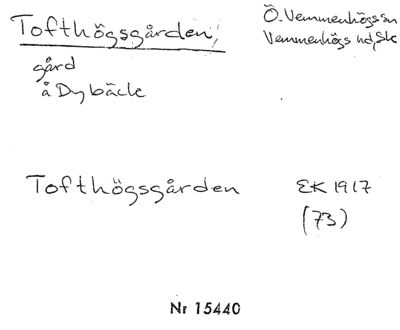 Tofthögsgården,
Ö. Vemmenhögs sn
Vemmenhögs hd, Sk
gård
å Dybäck
Tofthögsgården
EK 1917
(73)
Nr 15440